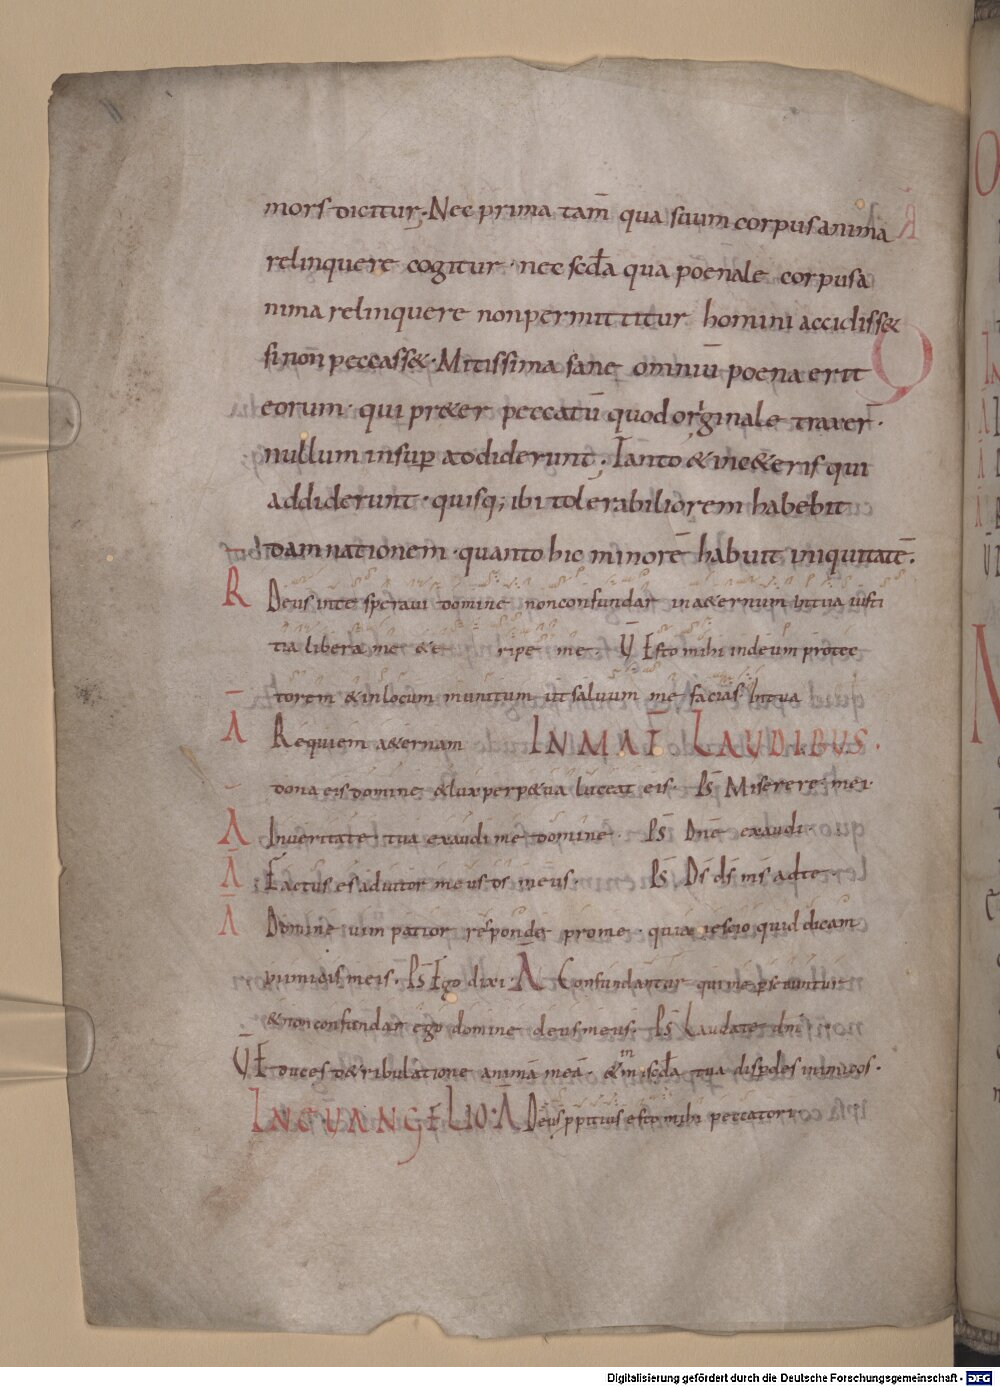 mors dicitur. Nec prima tam̄ qua suum corpus anima
relinquere cogitur · nec scd̄a qua poenale corpus a
nima relinquere non permittitur homini accidiss&
si non̄ peccass& · Mitissima sane omniū poena erit
eorum · qui pr&er peccatū quod originale traxer̄ ·
nullum insup addiderunt ; Tanto & in c&eris qui
addiderunt · quisq; ibi tolerabiliorem habebit
damnationem · quanto hic minorē habuit iniquitatē.
R Deus in te speravi domine non confundar in a&ernum in tua iusti
tia libera me & e ripe me. V̄ Esto mihi in deum protec
torem & in locum munitum ut salvum me facias In tua
A Requiem a&ernam IN MAT̄ LAUDIBUS.
dona eis domine & lux perp&ua luceat eis. Ps̄ Miserere mei
A In veritate tua exaudi me domine. Ps̄ Dnē exaudi.
Ā Factus es adiutor meus ds̄ meus. Ps̄ Ds̄ ds̄ ms̄ ad te.
Ā Domine vim patior responde pro me · quia nescio quid dicam
inimicis meis. Ps̄ Ego dixi Ā Confundantur qui me persecuntur
& non confundar ego domine deus meus. Ps̄ Laudate dnī
V̄ Educes de tribulatione animā meā · & in m̄scd̄a tua disp̄des inimicos.
IN EVANGELIO. Ā Deus ppitius esto mihi peccatori
Digitalisierung gefördert durch die Deutsche Forschungsgemeinschaft - DFG